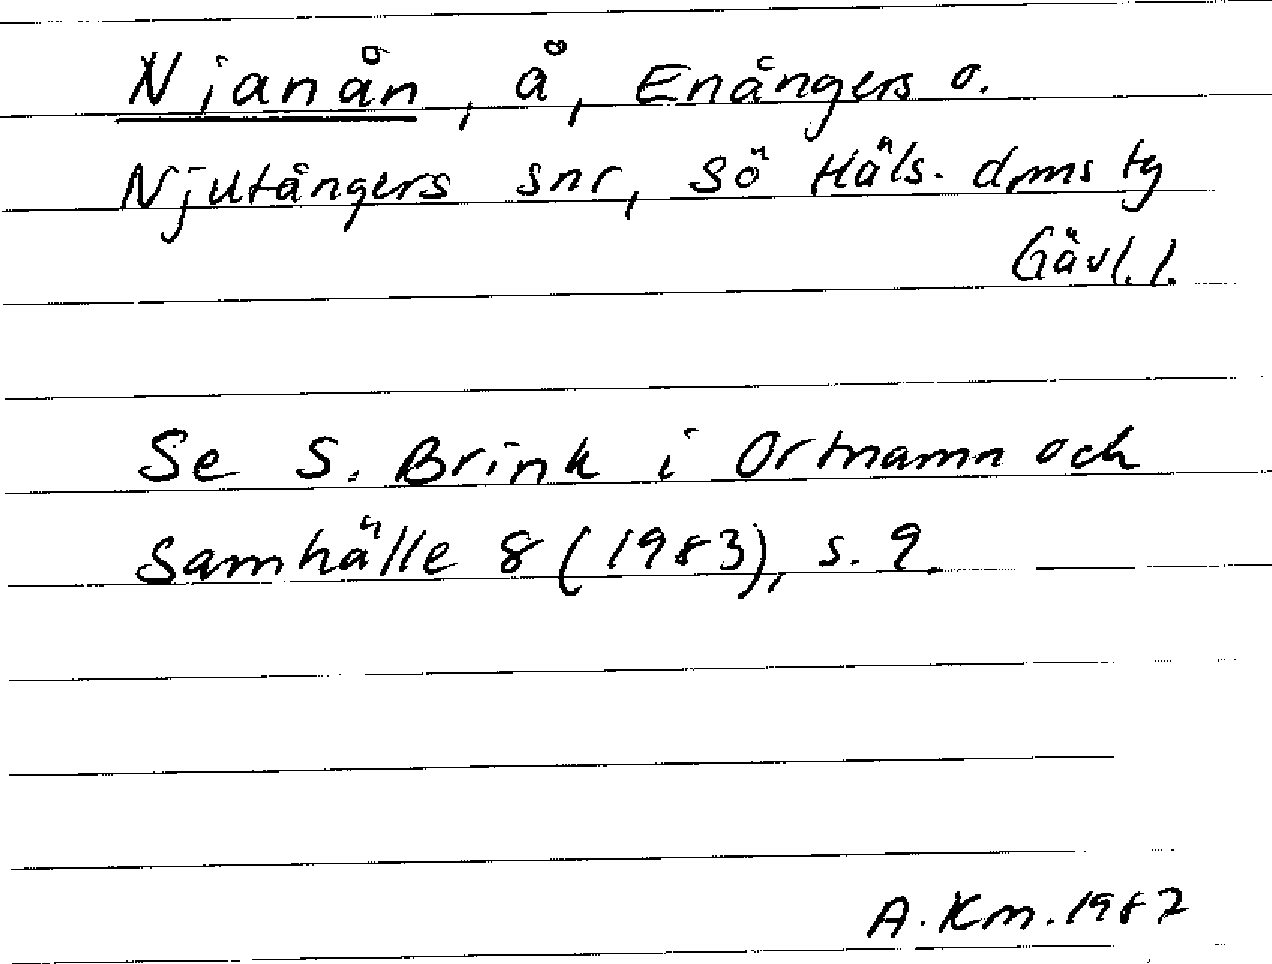 Njanån, å, Enångers o.
Njutångers snr, Sö Häls. dms tg
Gävl. l.
Se S. Brink i Ortnamn och
Samhälle 8 (1983), s. 9.
A. Km. 1987